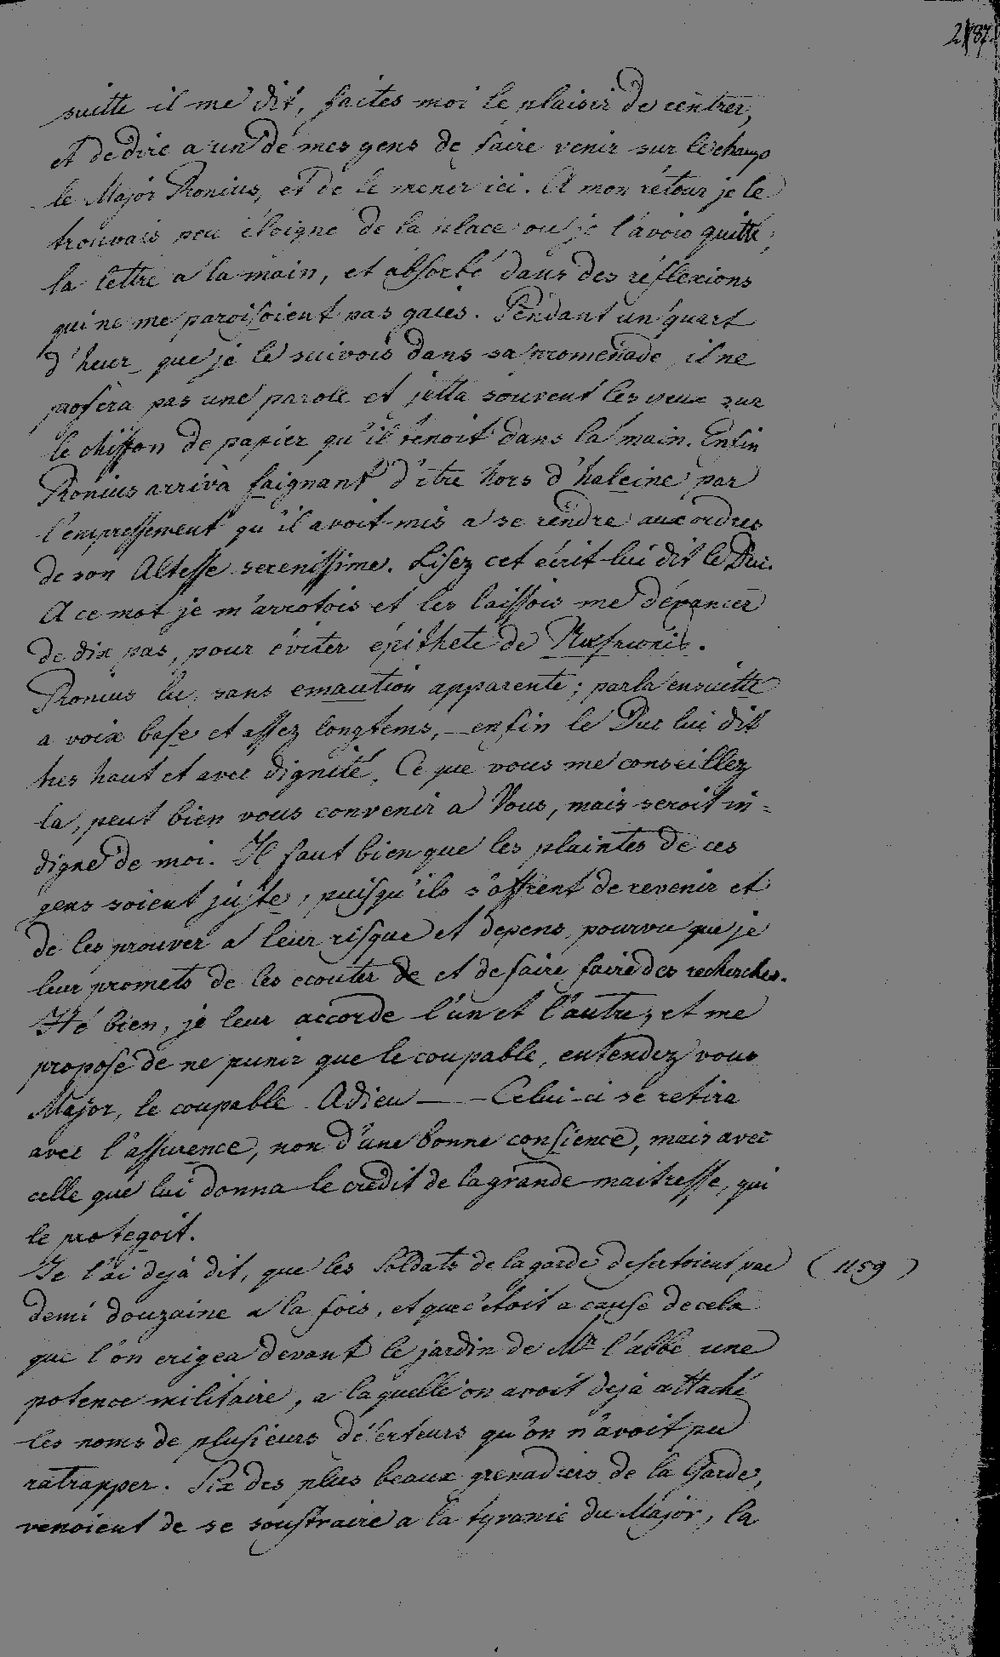 2187.
suitte il me dit, faites moi le plaisir de rentrer,
et de dire a un de mes gens de faire venir sur le champ
le Major Pronius, et de le mener ici. A mon retour je le
trouvais peu éloigné de la place ou je l'avois quitté,
la lettre a la main, et absorbé dans des réflexions
qui ne me paroisoient pas gaies. Pendant un quart
d'heur que je le suivois dans sa promenade, il ne
profera pas une parole et jetta souvent les yeux sur
le chiffon de papier qu'il tenoit dans la main. Enfin
Pronius arriva faignant d'être hors d'haleine par
l'empressement qu'il avoit mis a se rendre aux ordres
de son Altesse serenissime. Lisez cet écrit lui dit le Duc.
A ce mot je m'arrotois et les laissois me dévancer
de dix pas, pour éviter épithete de
Pronius lu, sans emaution apparente; parla ensuitte
a voix base et assez longtems, — enfin le Duc lui dit
tres haut et avec dignité. Ce que vous me conseillez
la, peut bien vous convenir a Vous, mais seroit in=
digne de moi. Il faut bien que les plaintes de ces
gens soient juste, puisqu'ils s'offrent de revenir et
de les prouver a leur risque et depens, pourvu que je
leur promets de les ecouter de et de faire faire des recherches.
Hé bien, je leur accorde l'un et l'autre, et me
propose de ne punir que le coupable, entendez vous
Major, le coupable Adieu — — Celui-ci se retira
avec l'assurence, non d'une bonne consience, mais avec
celle que lui donna le credit de la grande maitresse, qui
le protegoit.
Je l'ai dejà dit, que les Soldats de la garde desertoient par (1159)
demi douzaine a la fois, et que c'étoit a cause de cela
que l'on erigea devant le jardin de Mr l'abbé une
potence militaire, a laquelle on avoit dejà attaché
les noms de plusieurs déserteurs qu'on n'avoit pu
ratrapper. Six des plus beaux grenadiers de la Garde,
venoient de se soustraire a la tyranie du Major, la